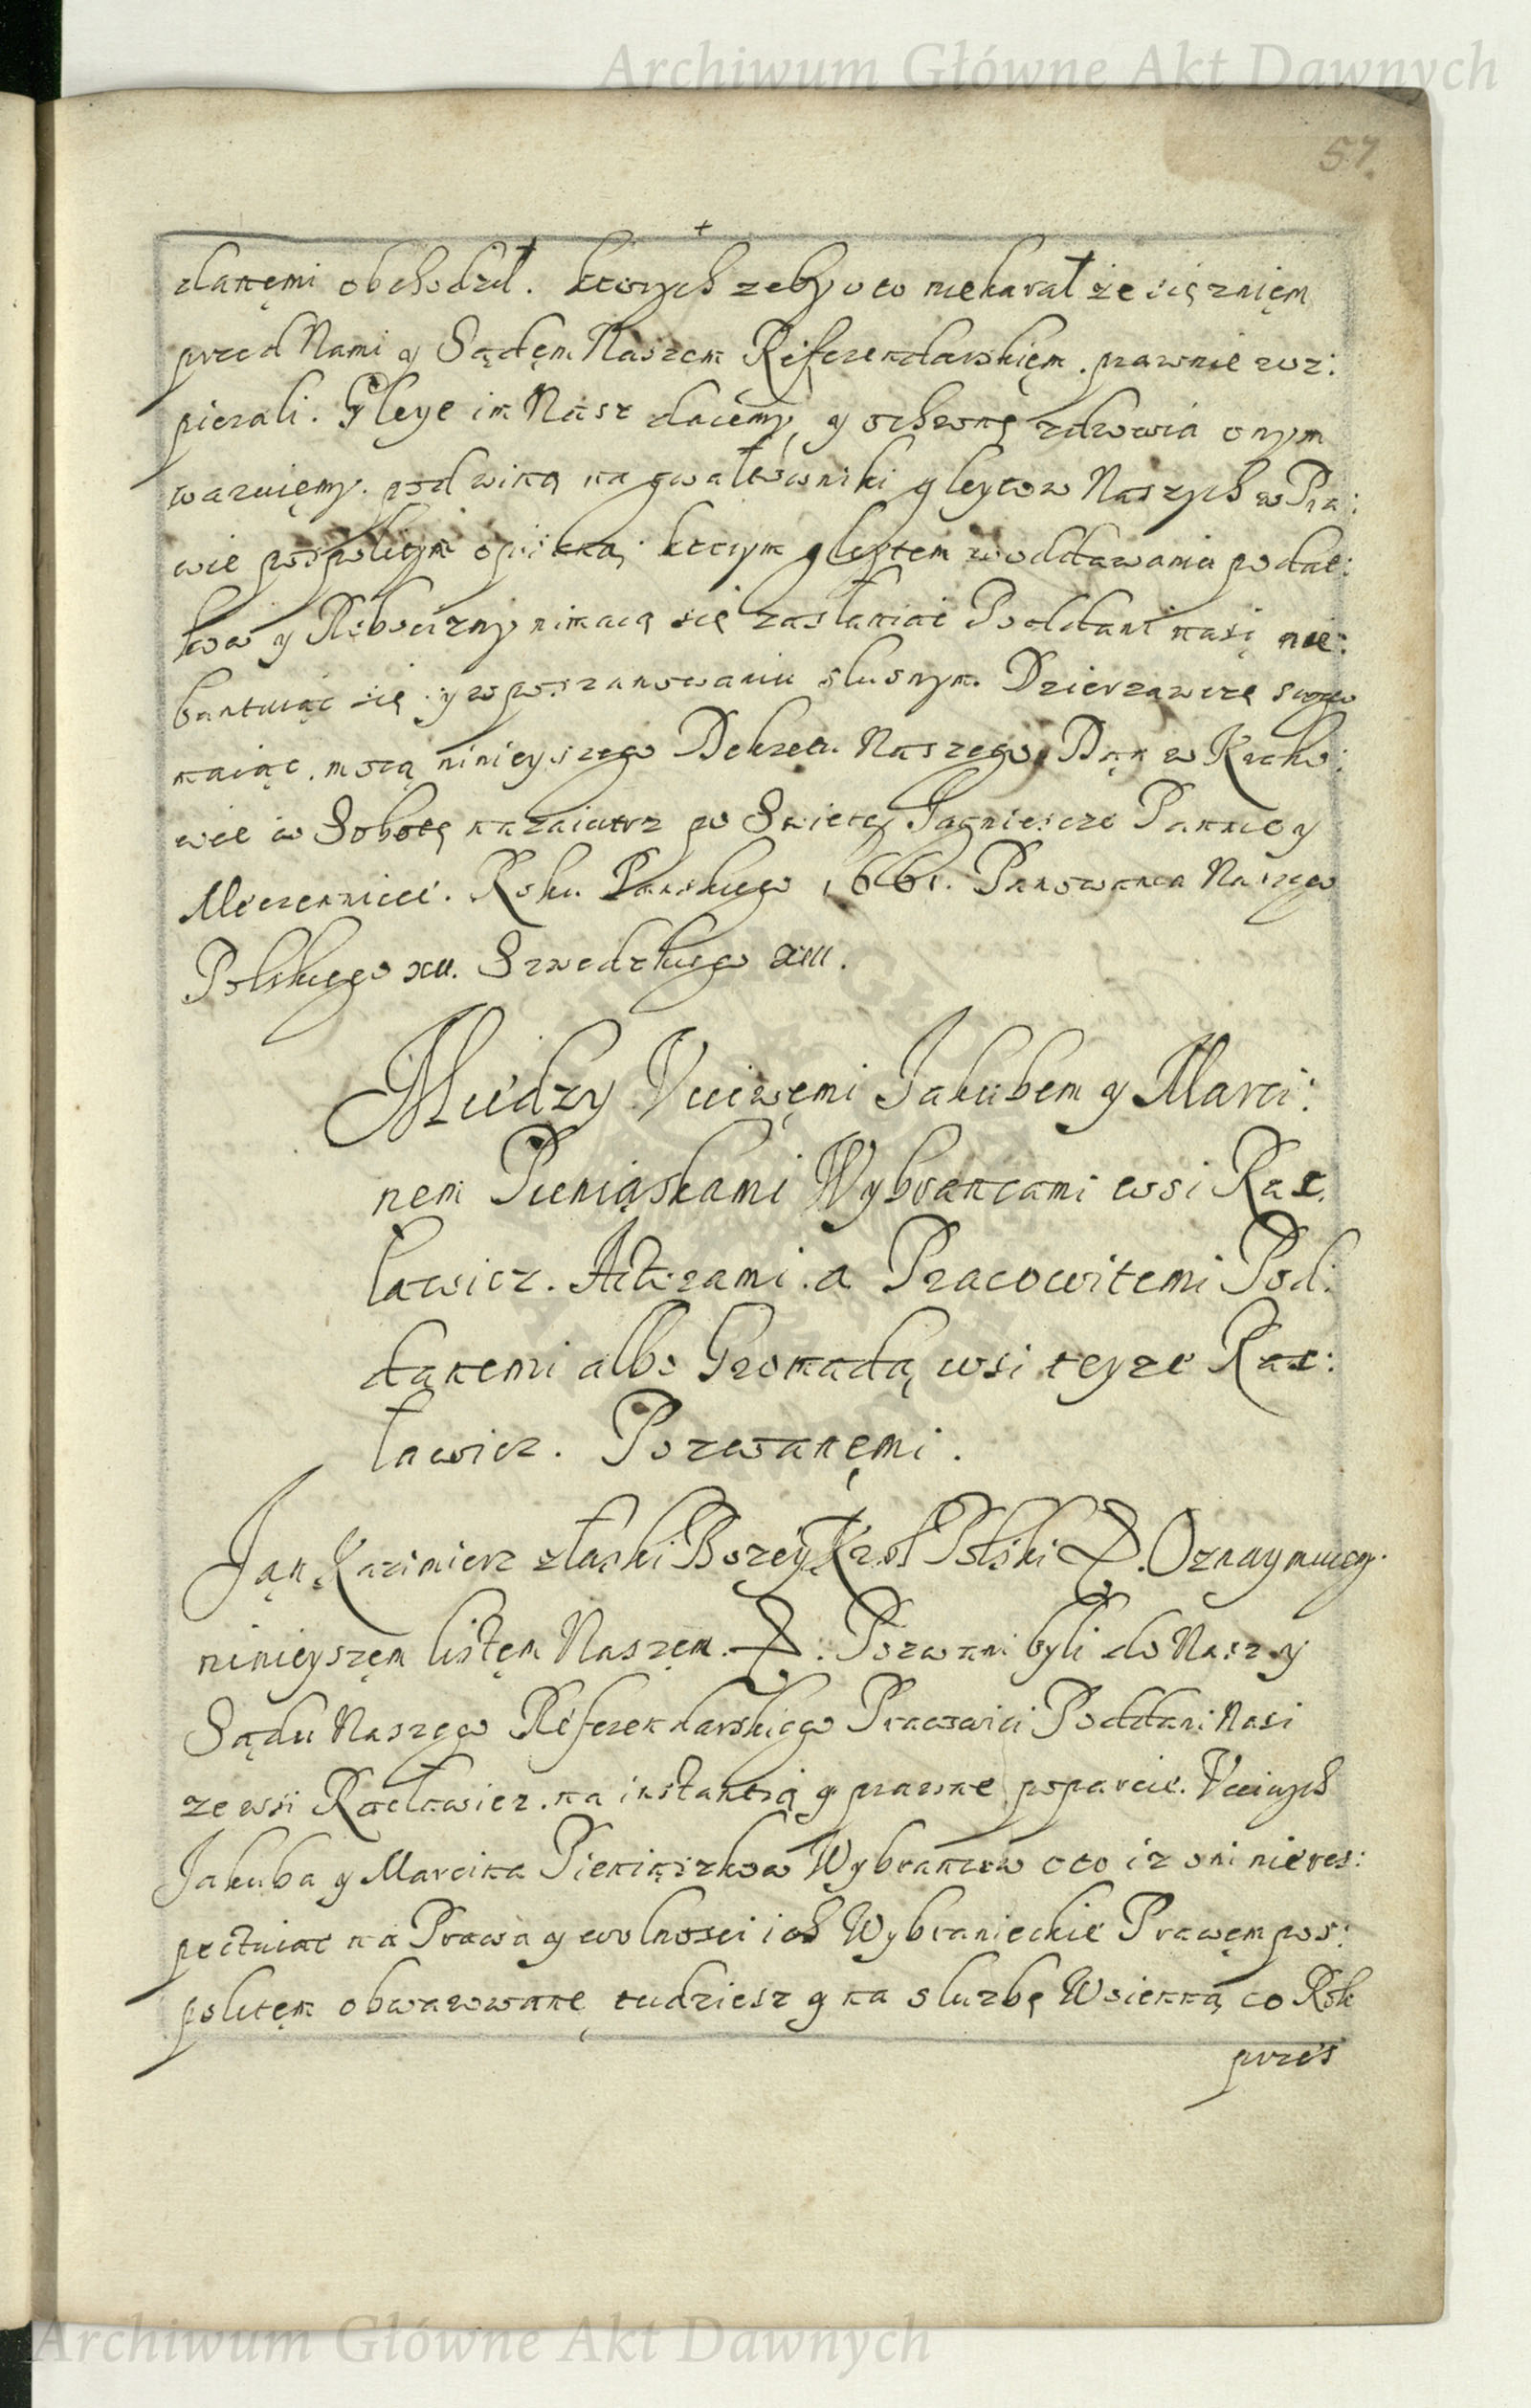 Archiwum Główne Akt Dawnych
57.
danęmi obchodził. ktorych zeby o to niekarał że się znięm
przed Nami y Sądęm Naszem Referendarskięm. prawnie roz:
pierali. Gleyt im Nasz daiemy, y ochronę zdrowia onym
waruięmy. pod winą na gwałtowniki gleytow Naszych w Pra:
wie pospolitym opisaną. ktorym gleytem w oddawaniu podat:
kow y Robocizny nimaią się zasłaniać Poddani nasi nie:
buntuiąc się y w poszanowaniu slusnym. Dzierzawcę swego
maiąc. mocą ninieyszego Dekretu Naszego. Dan w Krako:
wie w Sobotę nazaiutrz po Swietey Jagnieszce Pannie y
Męczennicce. Roku Panskiego 1661. Panowania Naszego
Polskiego XII. Szwedzkiego XIII.
Miedzy Vcciwęmi Jakubem y Marci:
nem Pieniąskami Wybrancami wsi Rac.
ławicz. Aktorami. a Pracowitemi Pod:
danemi albo Gromadą wsi teyze Rac:
ławicz. Pozwanęmi.
Jąn Kazimierz złaski Bozey Krol Polski &. Oznaymuiem.
ninieyszęm listęm Naszęm. &: Pozwani byli do Nas y
Sądu Naszego Referendarskiego Pracowici Poddani Nasi
ze wsi Racławicz. na instantią y prawne poparcie. Vcciwych
Jakuba y Marcina Pieniąszkow Wybrancow o to iz oni nieres:
pectuiąc na Prawa y wolnosci ich Wybranieckie Prawęm pos:
politęm obwarowanę tudziesz y na sluzbę Woienną co Rok
przes
Archiwum Główne Akt Dawnych